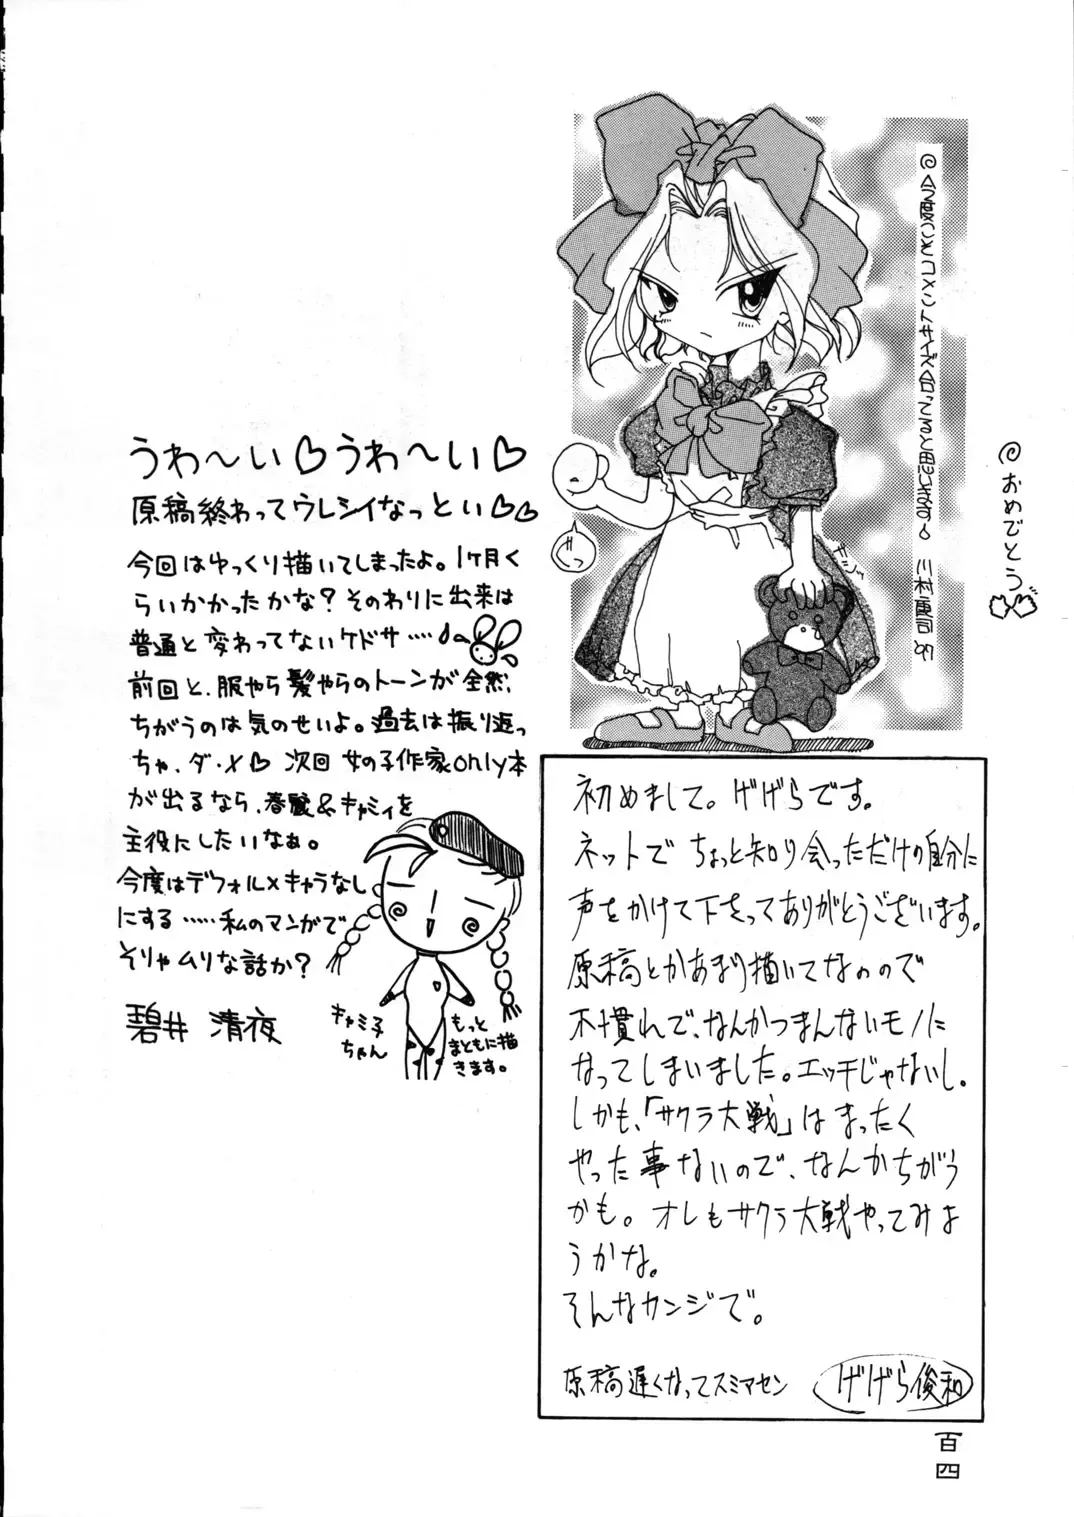 @今度こそコメントサイズ合ってると思います。 川村東司 '97
@おめでとう
ガシッ
うわ〜い♡うわ〜い♡
原稿終わってウレシイなっとい♡♡
今回はゆっくり描いてしまったよ。1ヶ月く
らいかかったかな?そのわりに出来は
普通と変わってないケドサ‥‥
前回と、服やら髪やらのトーンが全然、
ちがうのは気のせいよ。過去は振り返っ
ちゃ、ダ・メ♡ 次回 女の子作家only本
が出るなら、春麗&キャミィを
主役にしたいなぁ。
今度はデフォルメキャラなし
にする……私のマンガで
そりゃムリな話か?
碧井 清夜
キャミ子
ちゃん
もっと
まともに描
きます。
初めまして。げげらです。
ネットでちょっと知り会っただけの自分に
声をかけて下さってありがとうございます。
原稿とかあまり描いてなのので
不慣れで、なんかつまんないモノに
なってしまいました。エッチじゃないし。
しかも、「サクラ大戦」はまったく
やった事ないので、なんかちがう
かも。オレもサクラ大戦やってみよ
うかな。
そんなカンジで。
原稿遅くなってスミマセン
げげら俊和
百四